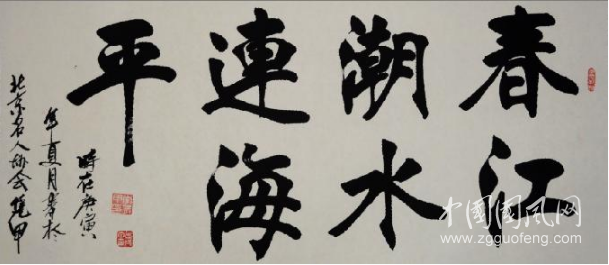 春江
潮水
連海
平
時在庚寅
年夏月書於
北京名人协会
中国国风网
www.zgguofeng.com